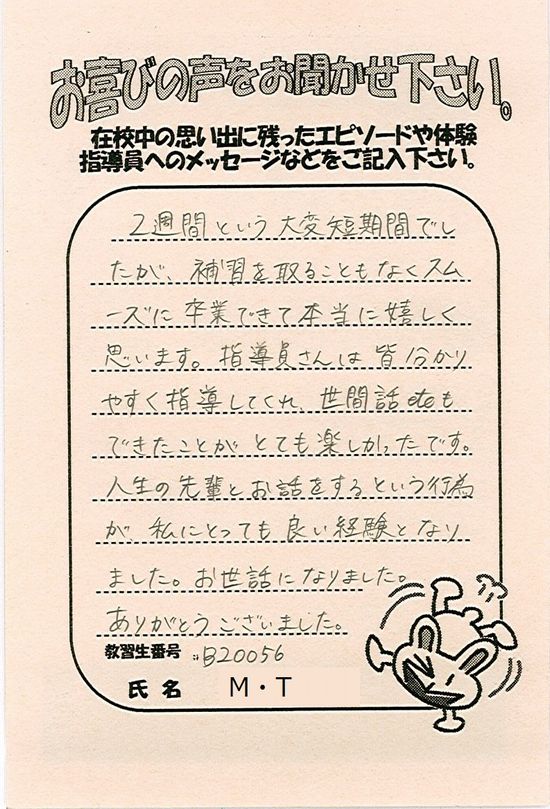 お喜びの声をお聞かせ下さい。
在校中の思い出に残ったエピソードや体験
指導員へのメッセージなどをご記入下さい。
2週間という大変短期間でし
たが、補習を取ることもなくスム
ーズに卒業できて本当に嬉しく
思います。指導員さんは皆分かり
やすく指導してくれ、世間話etcも
できたことがとても楽しかったです。
人生の先輩とお話をするという行為
が、私にとっても良い経験となり
ました。お世話になりました。
ありがとうございました。
教習生番号 B20056
氏名 M・T